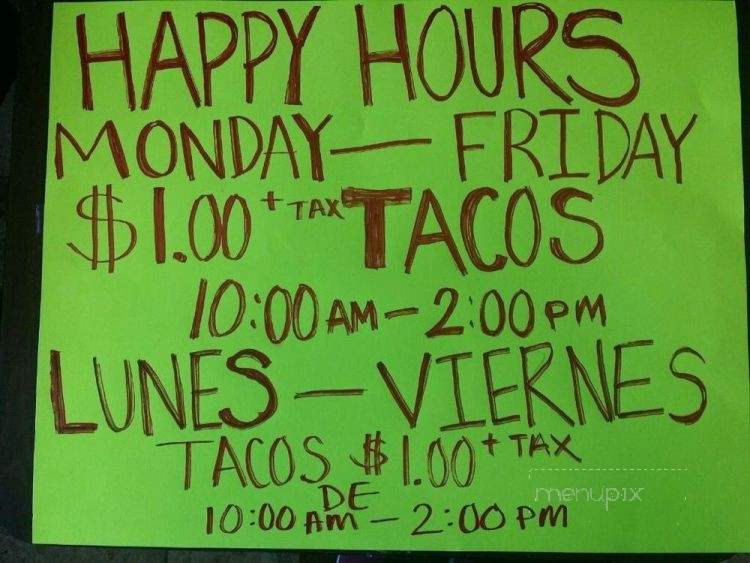 HAPPY HOURS
MONDAY — FRIDAY
$1.00 + TAX TACOS
10:00 AM – 2:00 PM
LUNES — VIERNES
TACOS $1.00 + TAX
DE
10:00 AM – 2:00 PM
menupix